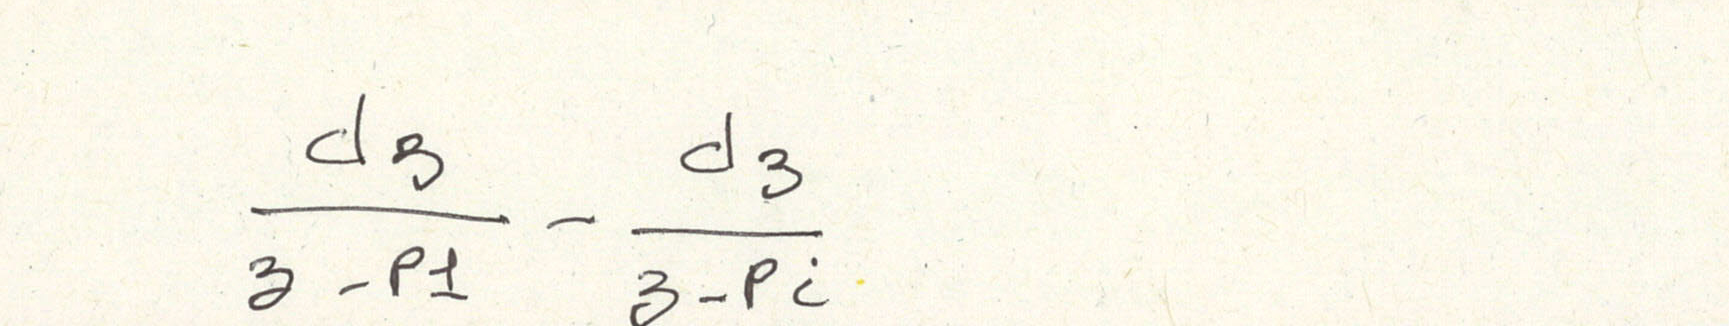 dz/(z-P1) - dz/(z-Pi)